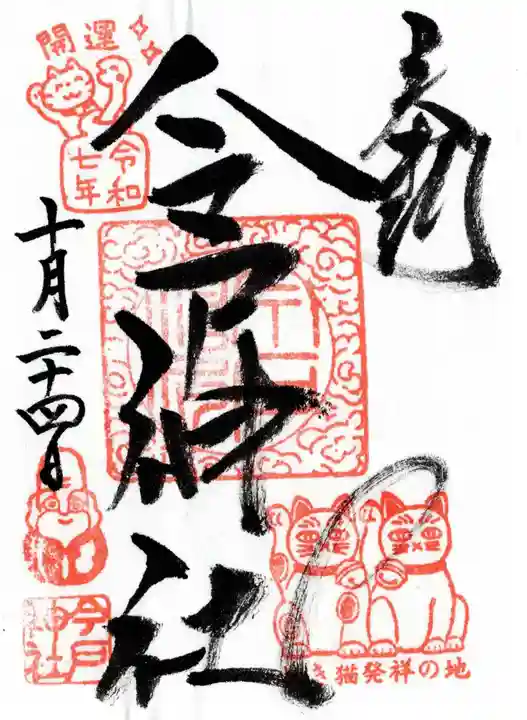 奉拝
今戸神社
開運
令和
七年
十月二十四日
き猫発祥の地
今戸
神社